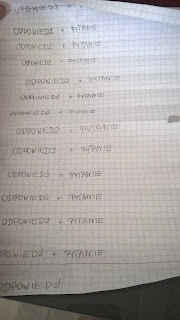 ODPOWIEDŹ + 
ODPOWIEDŹ + PYTANIE
ODPOWIEDŹ + PYTANIE
ODPOWIEDŹ + PYTANIE
ODPOWIEDŹ + PYTANIE
ODPOWIEDŹ + PYTANIE
ODPOWIEDŹ + PYTANIE
ODPOWIEDŹ + PYTANIE
ODPOWIEDŹ + PYTANIE
ODPOWIEDŹ + PYTANIE
ODPOWIEDŹ + PYTANIE
ODPOWIEDŹ + PYTANIE
POWIEDŹ + PYTANIE
ODPOWIEDŹ